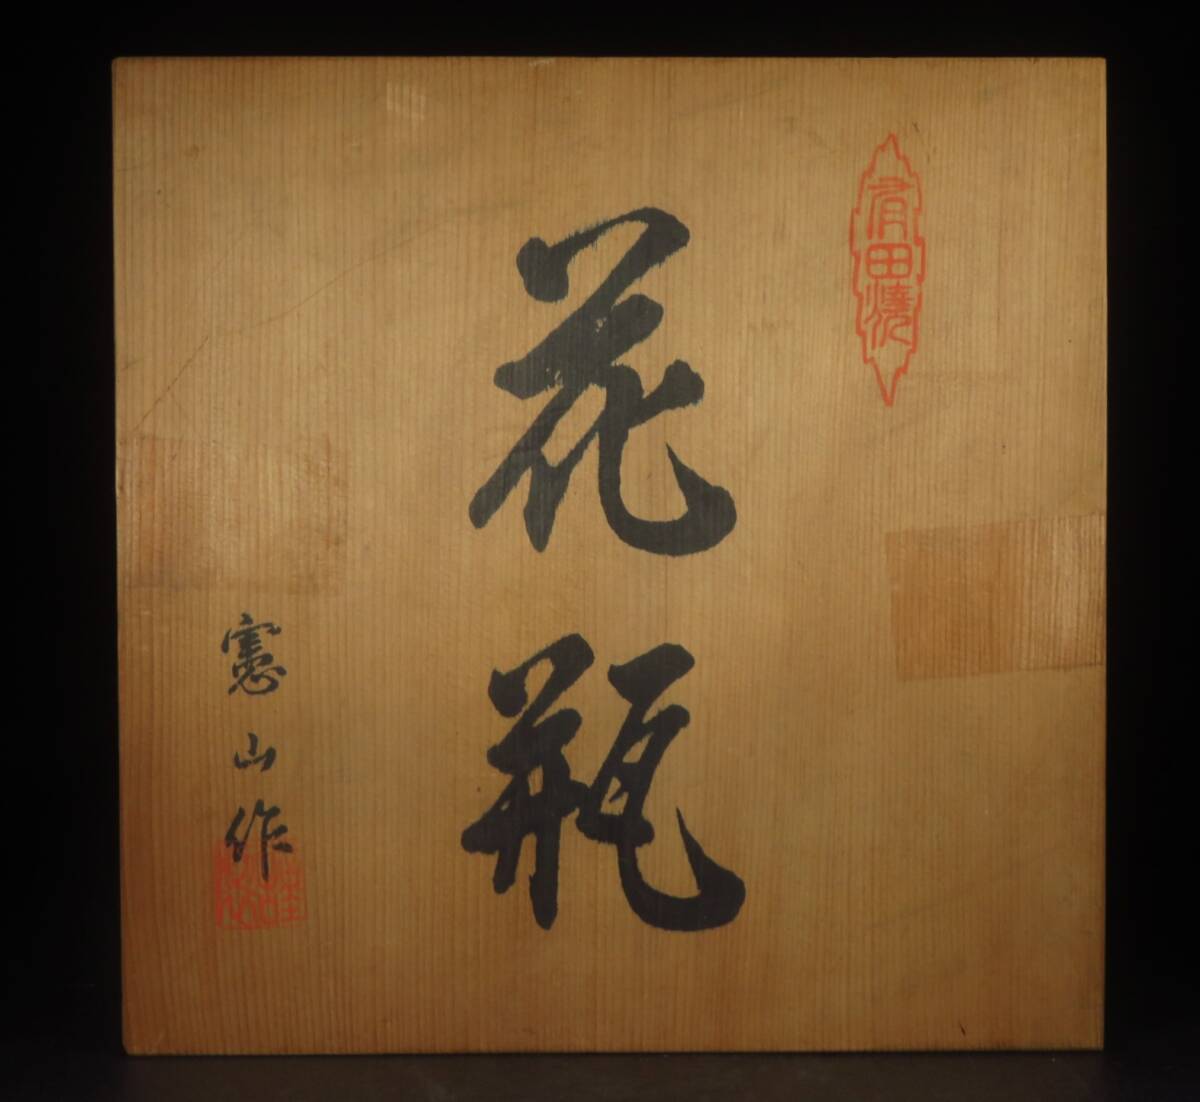 有田焼
花瓶
憲山作